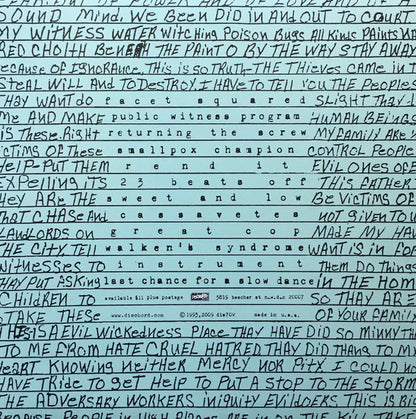 SOUND MIND. WE BEEN DID IN AND OUT TO COURT
MY WITNESS WATER WITCHING POISON BUGS ALL KINDS PAINTS
RED CHOITH BENEATH THE PAINT O BY THE WAY STAY AWAY
BECAUSE OF IGNORANCE. THIS IS SO TRUTH-THE THIEVES CAME IN
STEAL WILL AND TO DESTROY. I HAVE TO TELL YOU THE PEOPLE
THAY WANT DO facet squared SLIGHT THAY
ME AND MAKE public witness program HUMAN BEINGS
IS THESE. RIGHT returning the screw MY FAMILY ARE
VICTIMS OF THESE smallpox champion CONTROL PEOPLE
HELP-PUT THEM rend it EVIL ONES OF
EXPELLING ITS 23 beats off THIS FATHER
HEY ARE THE sweet and low BE VICTIMS OF
THAT CHASE AND cassavetes NOT GIVEN TO
LANDLORDS ON great cop MADE MY HAV
THE CITY. TELL walken's syndrome WANT IS IN FOR
WITNESSES TO instrument THEM DO THING
THAY PUT ASKING last chance for a slow dance IN THE HOM
CHILDREN TO available $11 plus postage dischord 3819 beecher st n.w.d.c 20007 SO THAY ARE
TAKE THESE www.dischord.com ©1993,2009 dis70V made in u.s.a. OF YOUR FAMILY
THIS IS A EVIL WICKEDNESS PLACE THAY HAVE DID SO MINNY
TO ME FROM HATE CRUEL HATRED THAY DID THANG TO
HEART KNOWING NEITHER MERCY NOR PITY I COULD
HAVE TRIDE TO GET HELP TO PUT A STOP TO THE STORM
THE ADVERSARY WORKERS INIQUITY EVILDOERS THIS IS
BECAUSE PEOPLE IN HIGH PLACES ARE